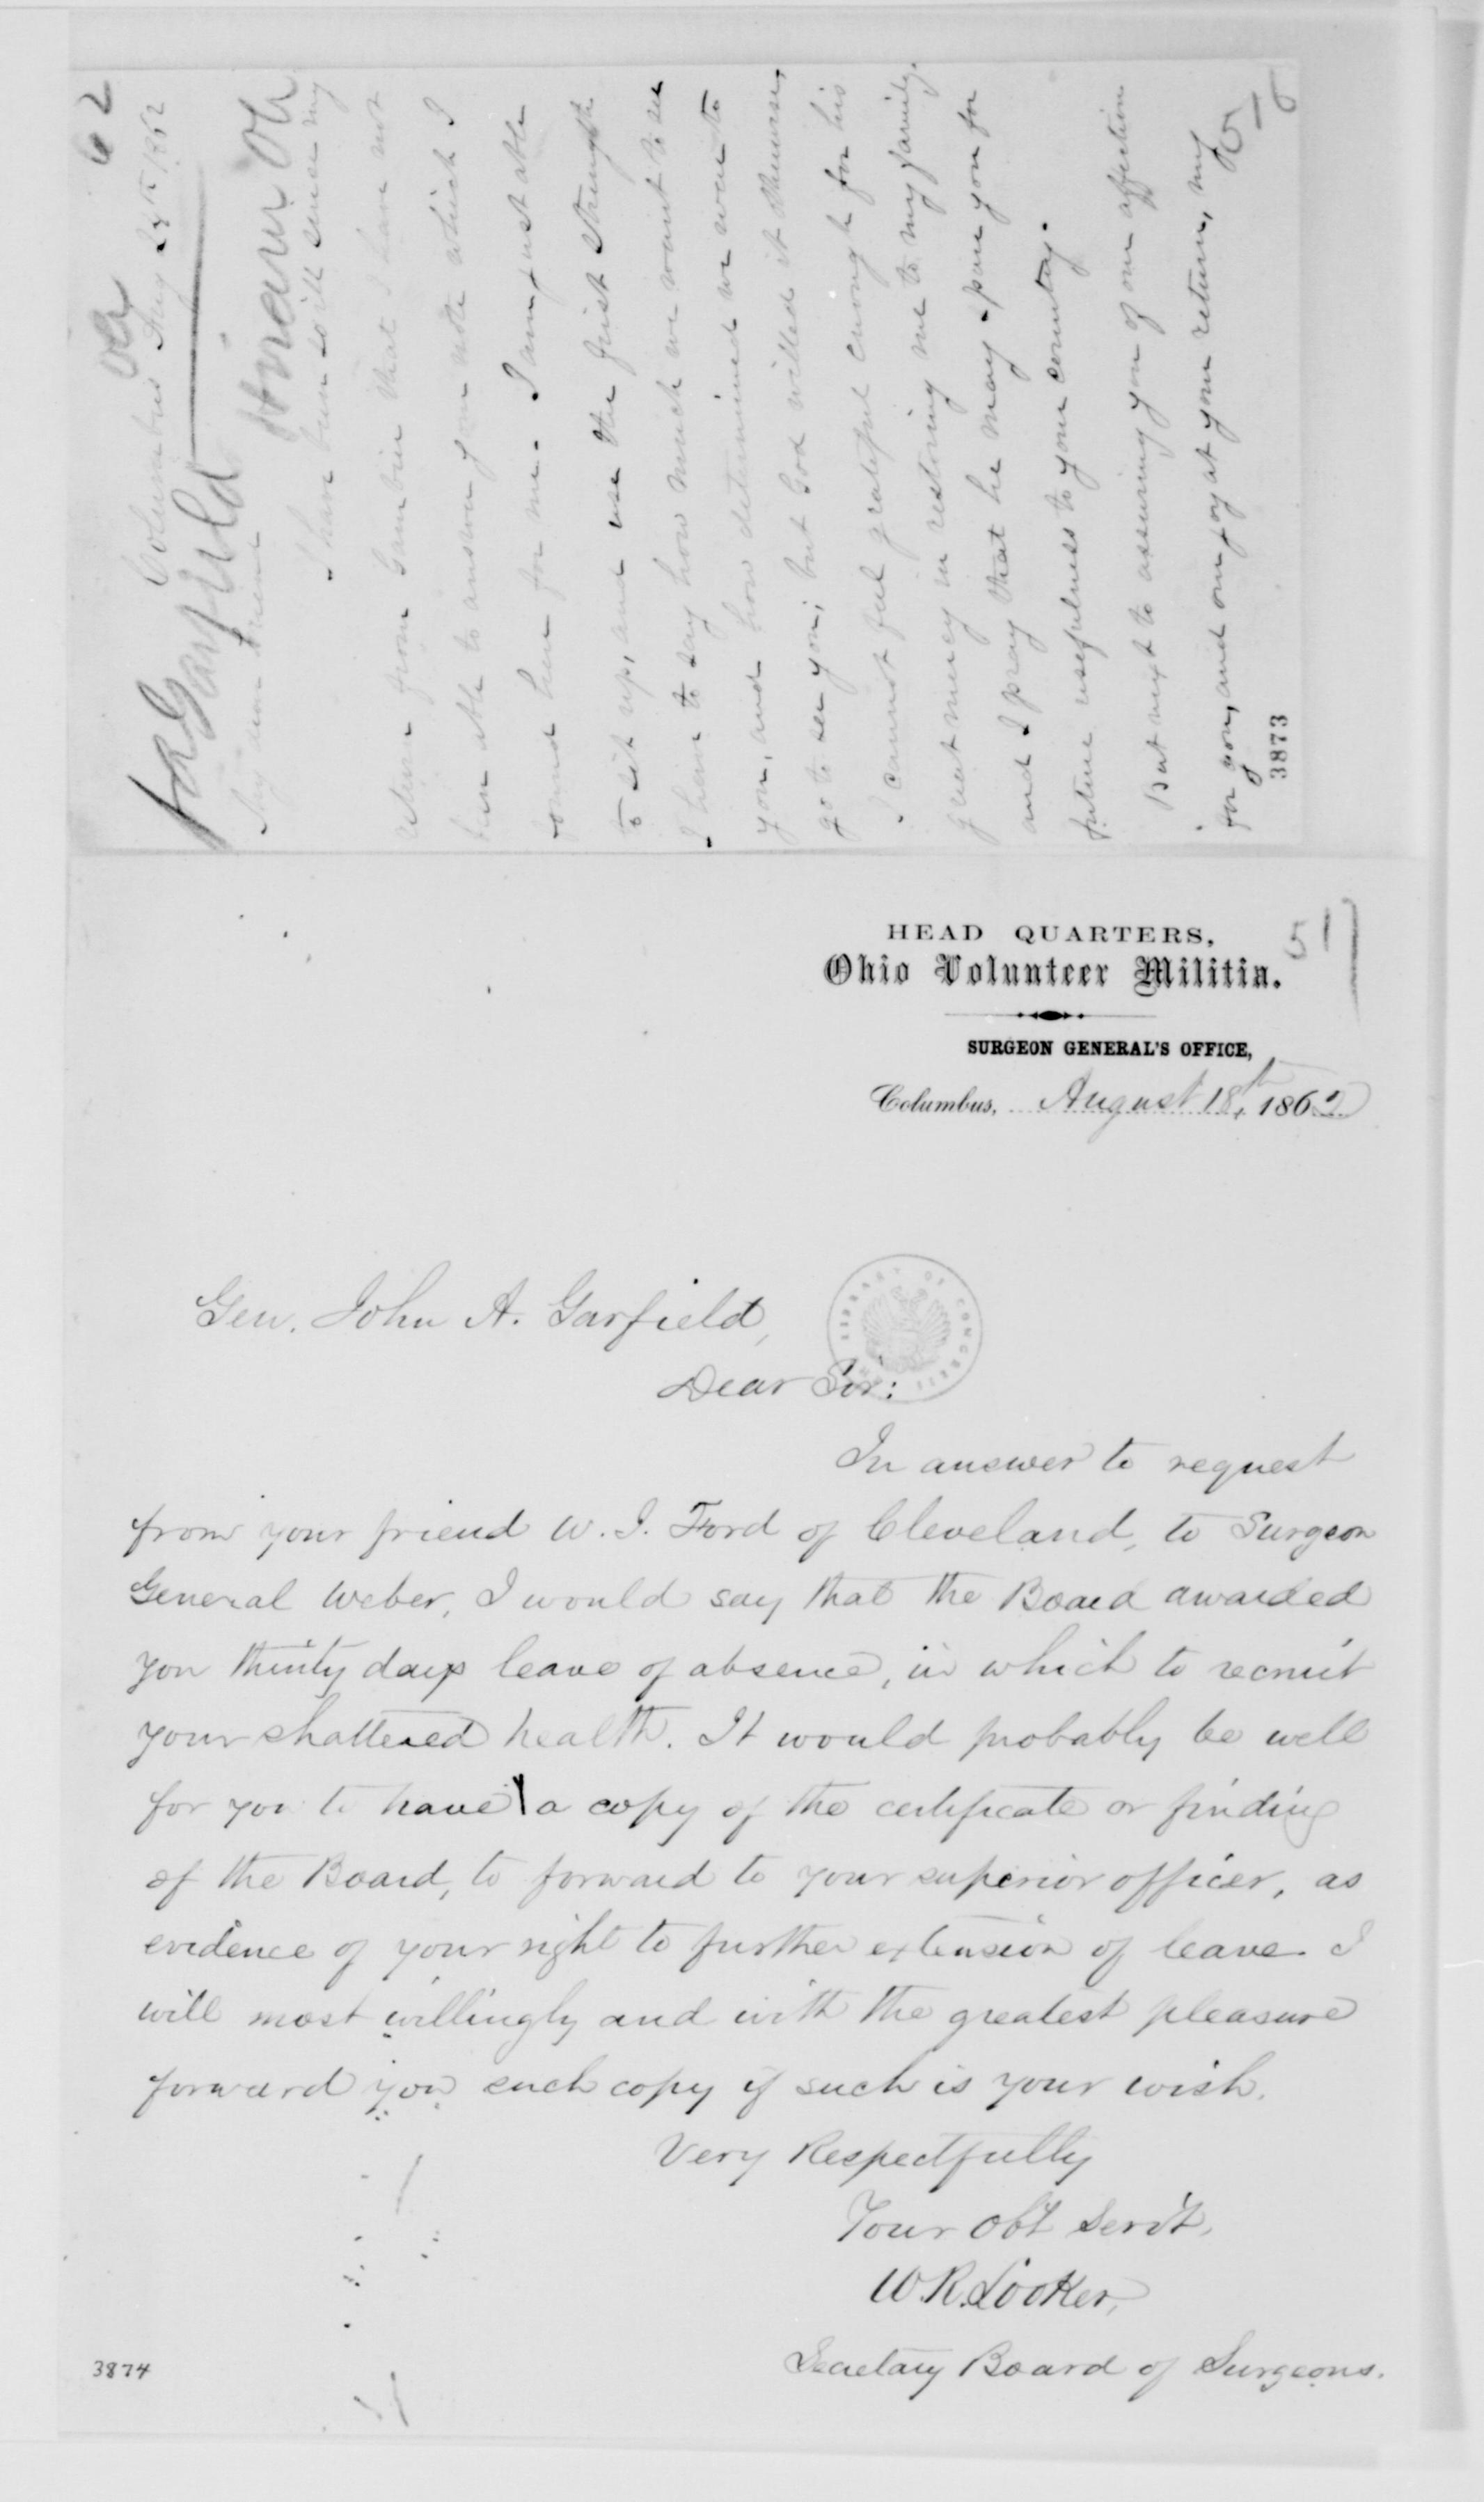 62
Columbus Aug 25th 1862
JA Garfield Hiram Oh
My dear Friend
I have been so ill since my
return from Gambier that I have not
been able to answer your note which I
found here for me. I am just able
to sit up, and use the first strength
I have to say how much we want to see
you, and how determined we were to
go to see you; but God willed it otherwise,
I cannot feel grateful enough for his
great mercy in restoring me to my family,
and I pray that he may spare you for
future usefulness to your country.
But next to assuring you of our affection
for you, and our joy at your return, my
3873
51
HEAD QUARTERS,
Ohio Volunteer Militia.
SURGEON GENERAL'S OFFICE,
Columbus, August 18th, 1862
Gen. John A. Garfield,
LIBRARY OF CONGRESS
Dear Sir:
In answer to request
from your friend W. J. Ford of Cleveland, to Surgeon
General Weber, I would say that the Board awarded
you thirty days leave of absence, in which to recruit
your shattered health. It would probably be well
for you to have a copy of the certificate or finding
of the Board, to forward to your superior officer, as
evidence of your right to further extension of leave. I
will most willingly and with the greatest pleasure
forward you such copy if such is your wish.
Very Respectfully
Your Obt Servt,
W. R. Looker,
Secretary Board of Surgeons.
3874